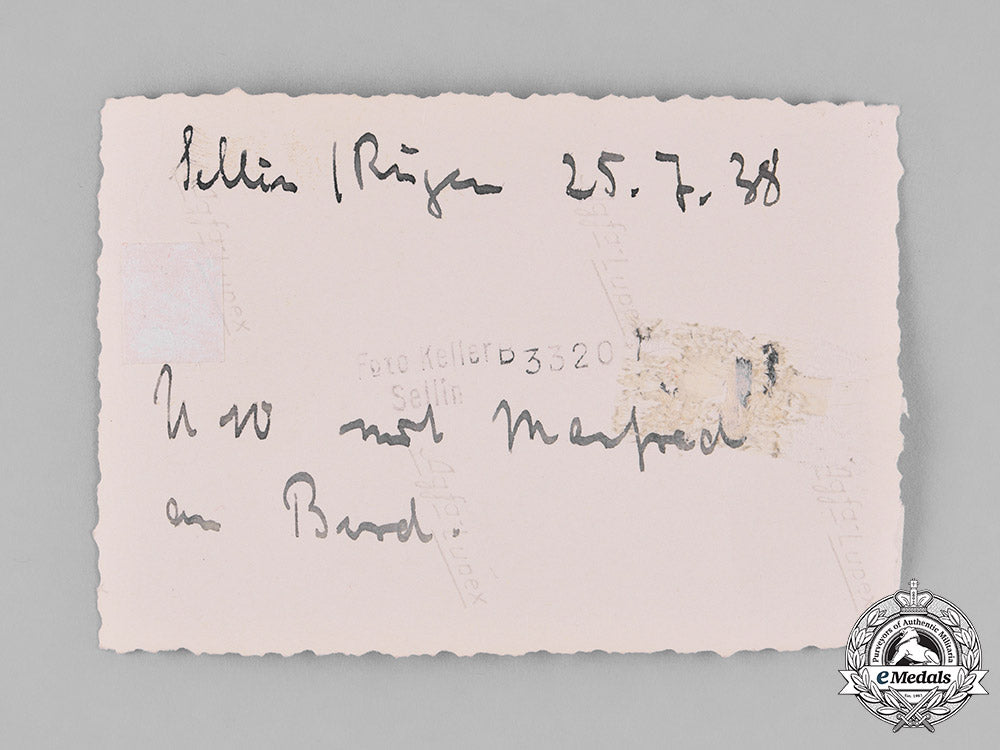 Sellin / Rügen 25. 7. 38
Agfa-Lupex
Agfa-Lupex
Foto Keller D 3320
Sellin
U 10 mit Manfred
an Bord.
Agfa-Lupex
Agfa-Lupex
Purveyors of Authentic Militaria
eMedals